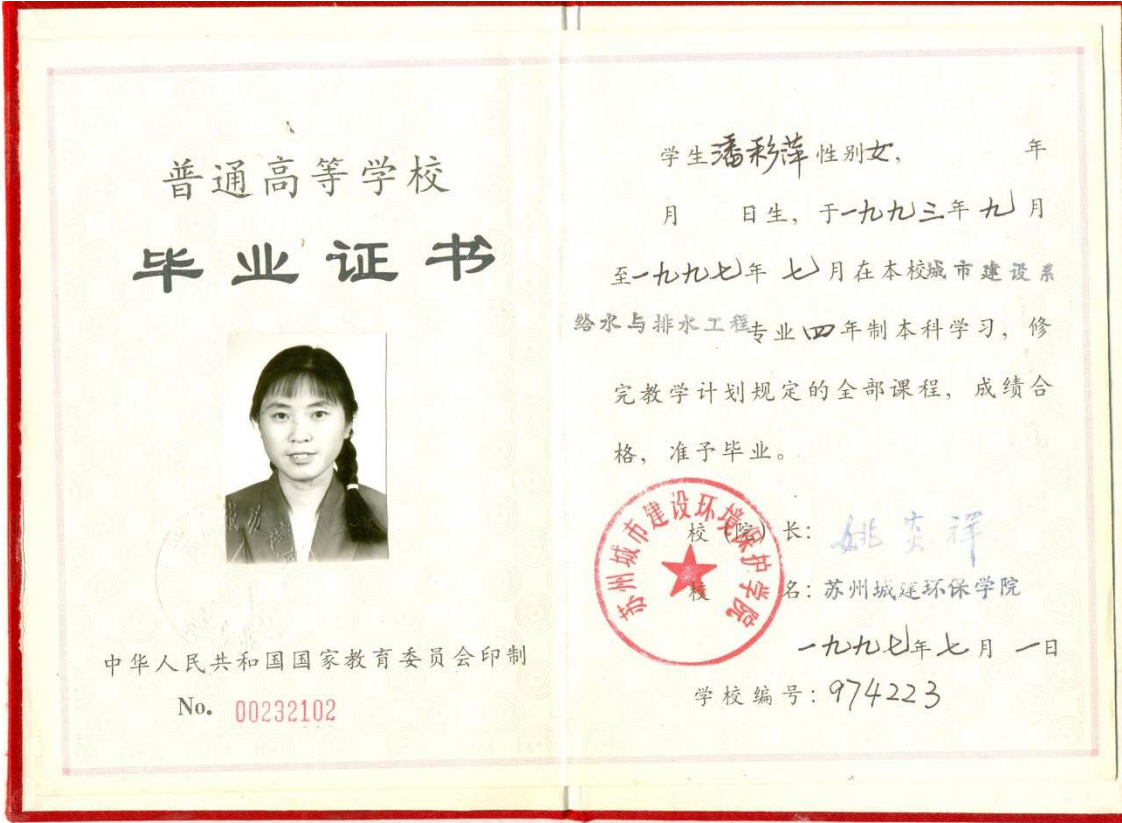 普通高等学校
毕业证书
中华人民共和国国家教育委员会印制
No. 00232102
学生潘彩萍性别女, 年
月 日生, 于一九九三年九月
至一九九七年七月在本校城市建设系
给水与排水工程专业四年制本科学习, 修
完教学计划规定的全部课程, 成绩合
格, 准予毕业。
校(院)长: 姚炎祥
校 名: 苏州城建环保学院
苏州城市建设环境保护学院
一九九七年七月一日
学校编号: 974223